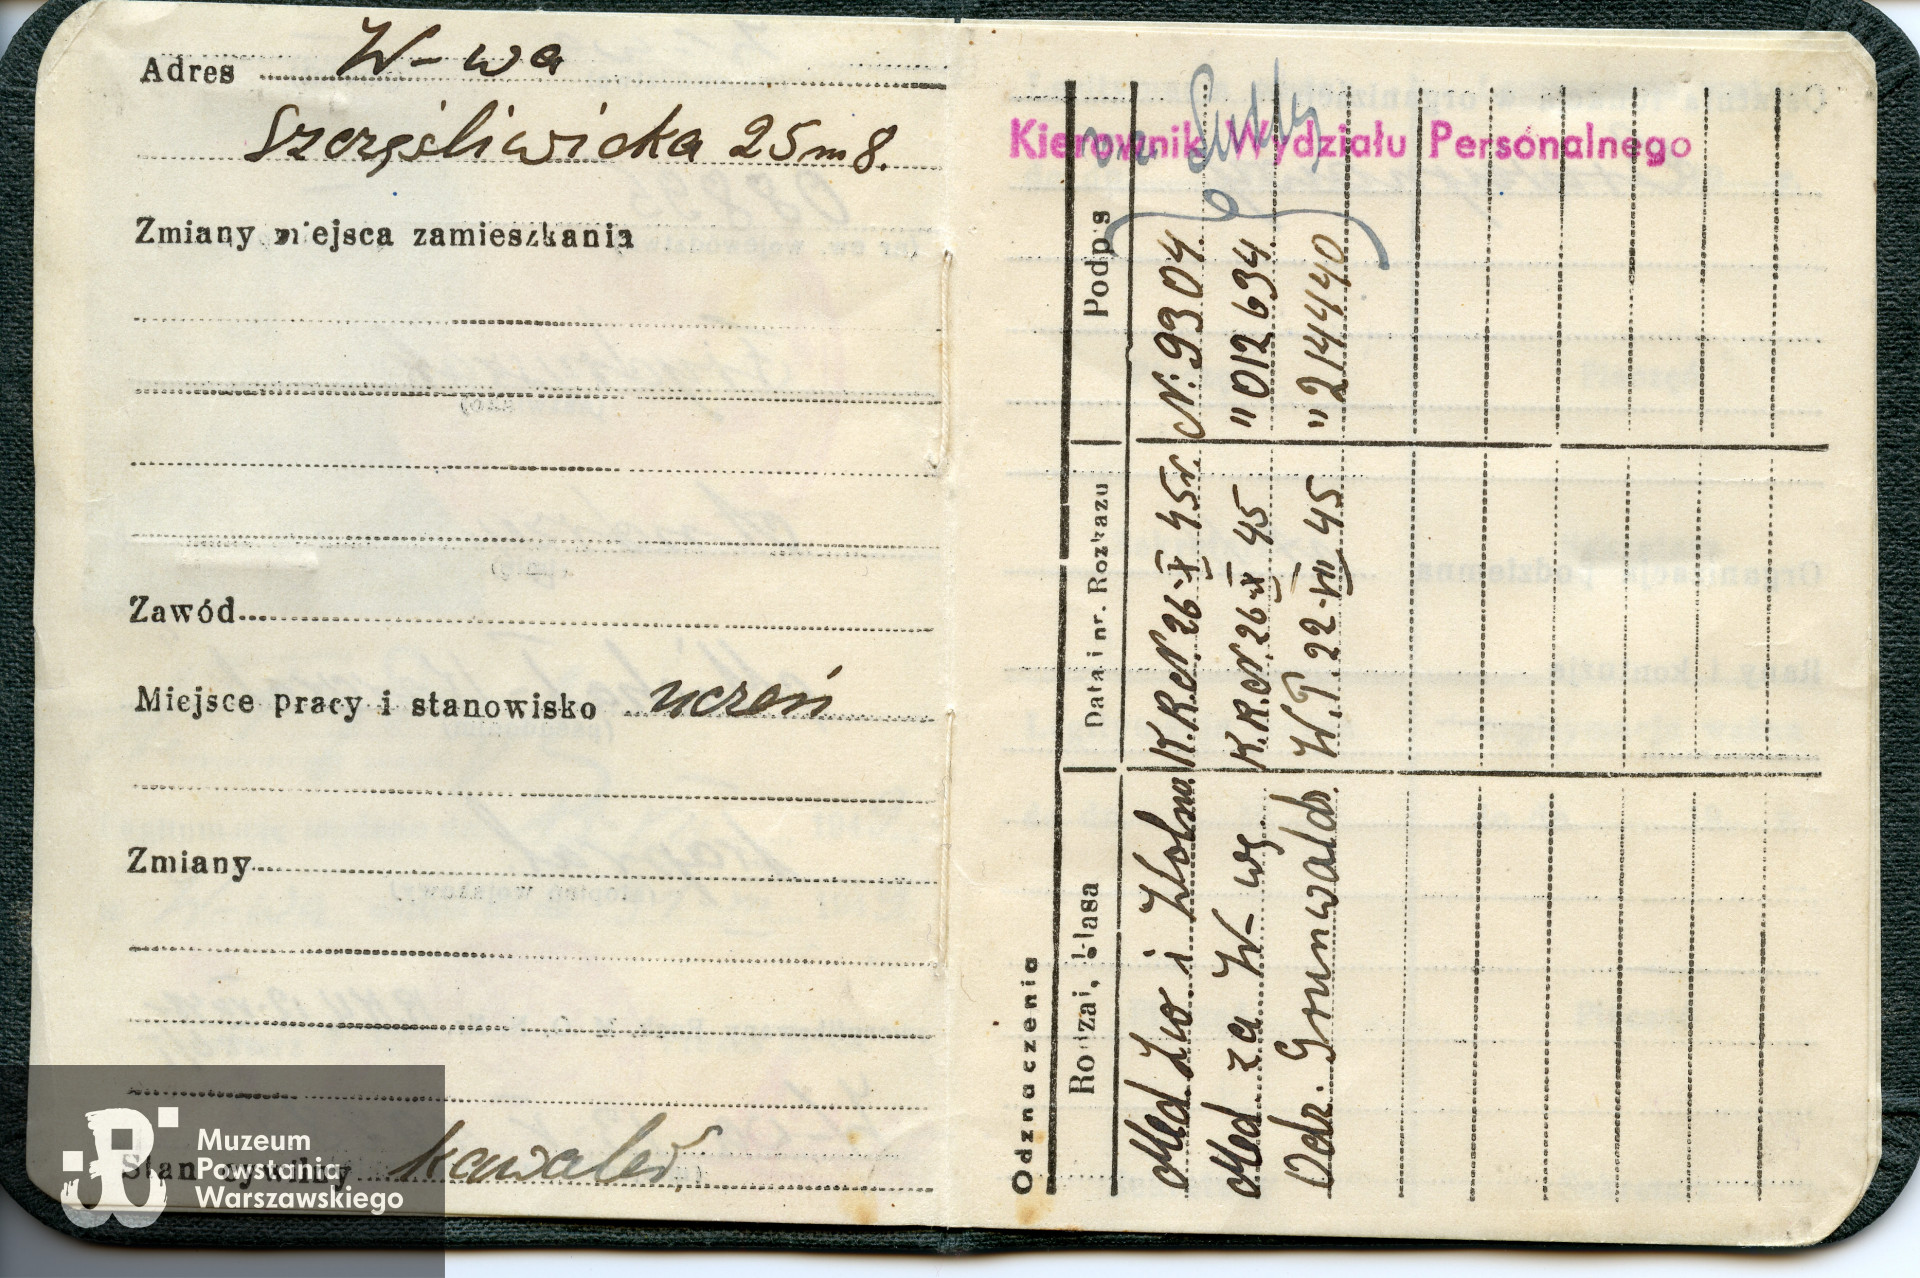 Adres W-wa
Szczęśliwicka 25 m 8.
Zmiany miejsca zamieszkania
Zawód
Miejsce pracy i stanowisko uczeń
Zmiany
Stan cywilny kawaler
Muzeum
Powstania
Warszawskiego
Kierownik Wydziału Personalnego
Odznaczenia
Rodzaj, klasa Data i nr. Rozkazu Podpis
Med Zw. i Wolno. K.R.N. 26-X 45r. N: 9304
Med za W-wę. K.R.N. 26-X 45 " 012634
Odz. Grunwaldu W.P. 22-VII 45 " 214440